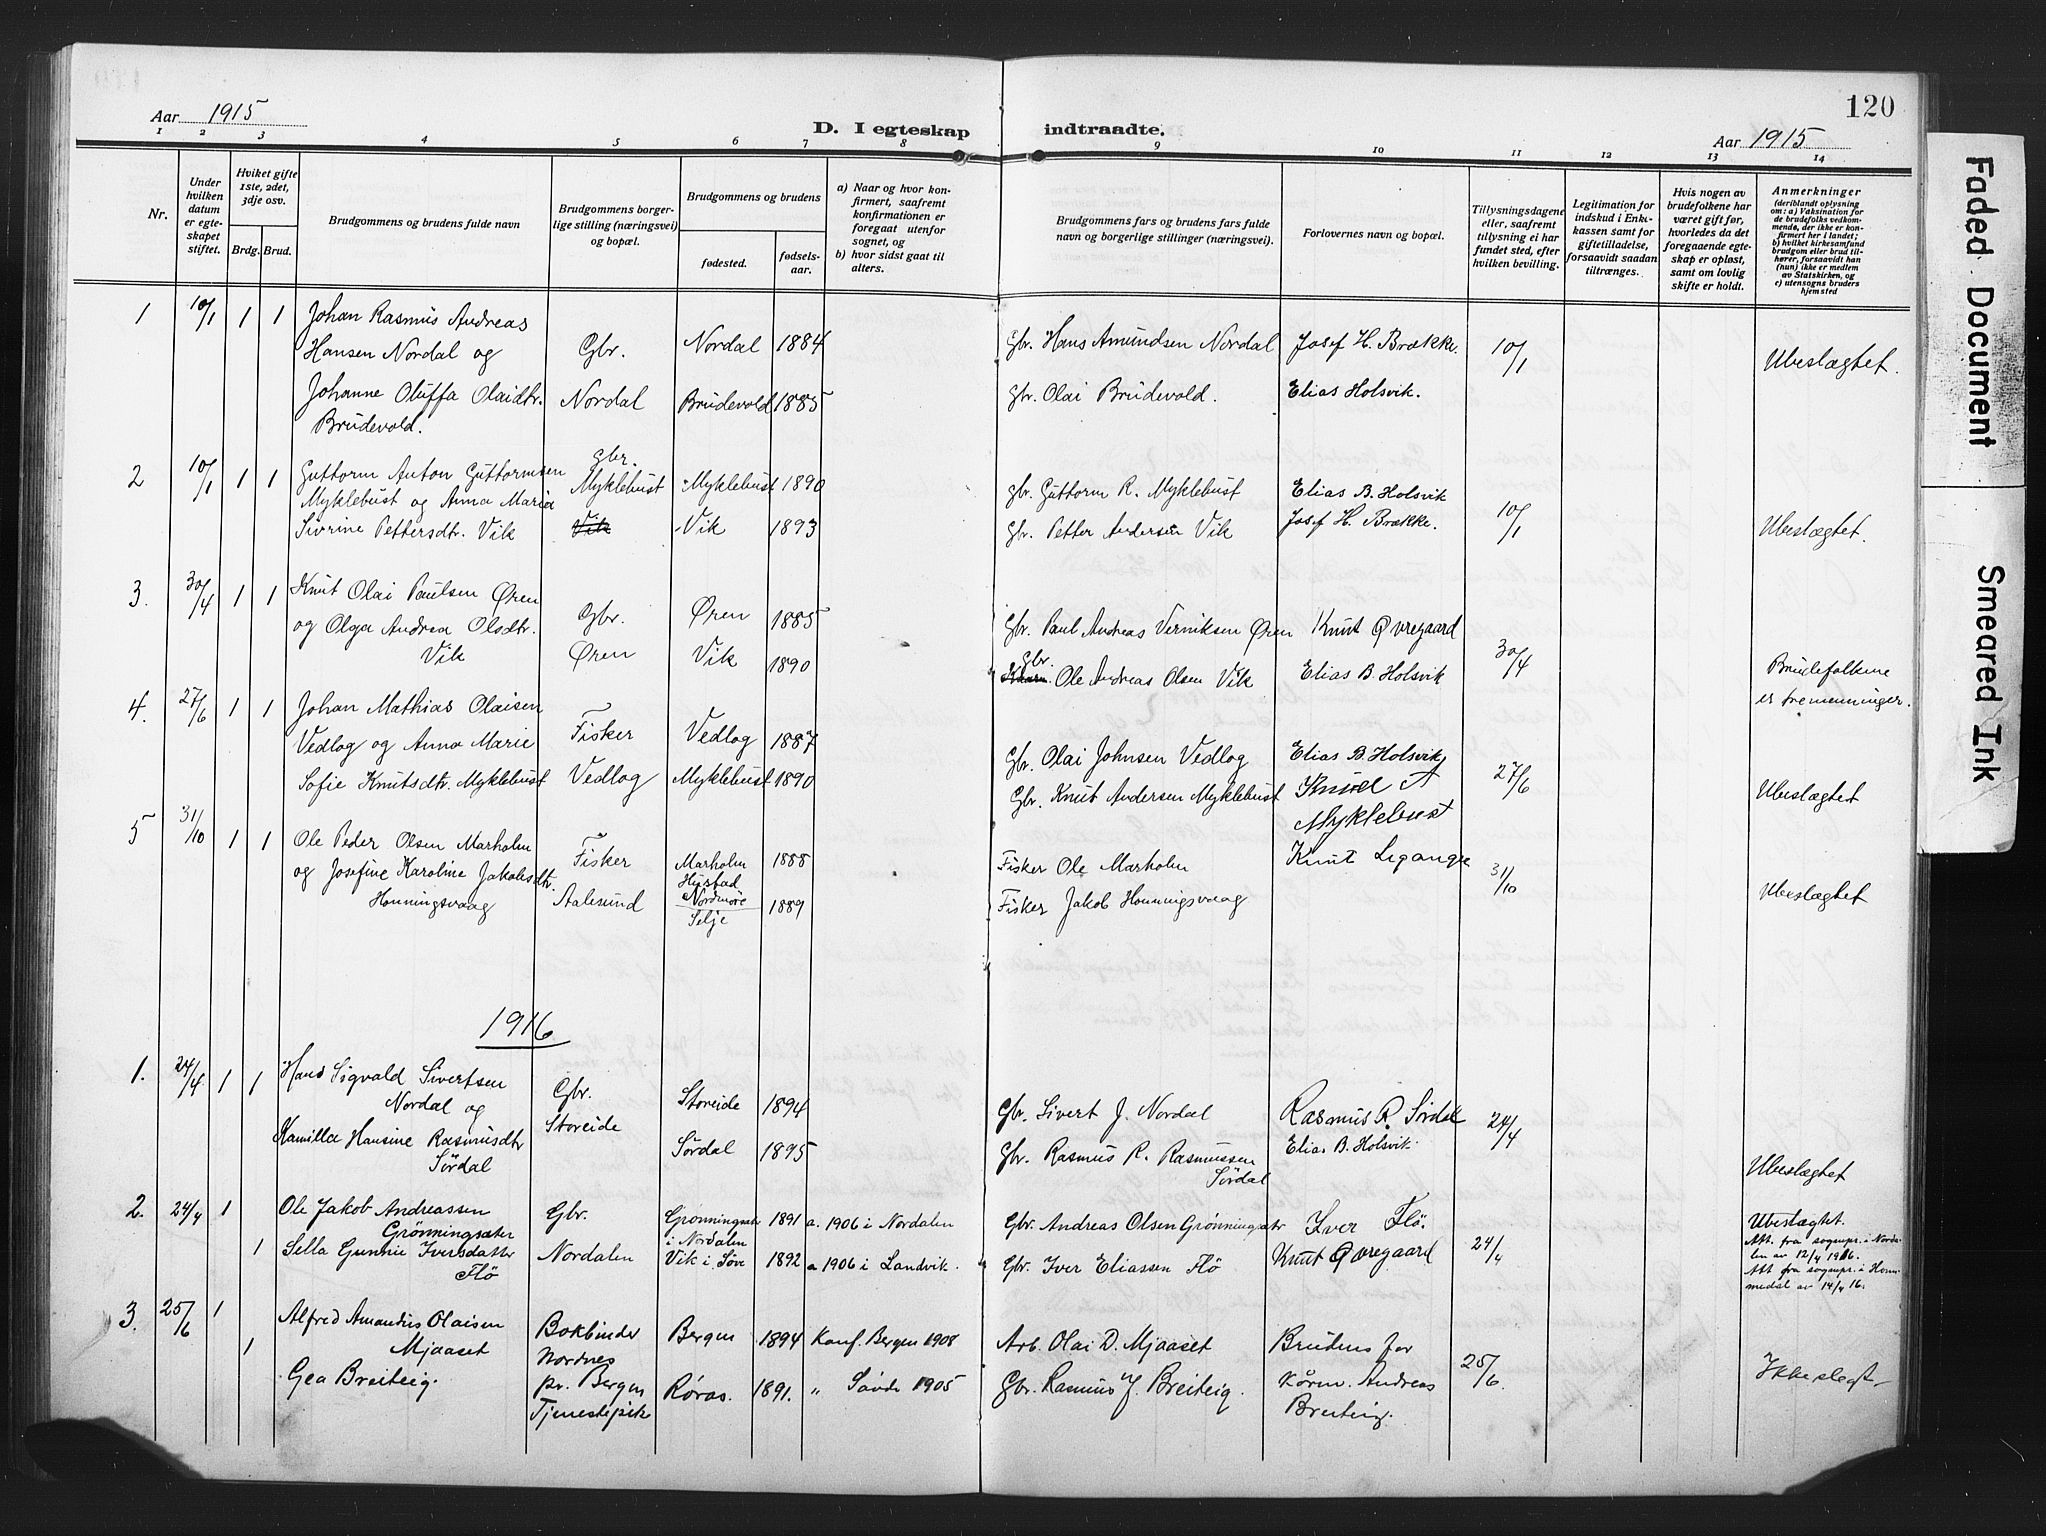 120
Aar 1915
D. I egteskap indtraadte.
Aar 1915
1 2 3 4 5 6 7 8 9 10 11 12 13 14
Nr.
Under hvilken datum er egteskapet stiftet.
Hviket gifte 1ste, 2det, 3dje osv.
Brdg. Brud.
Brudgommens og brudens fulde navn
Brudgommens borgerlige stilling (næringsvei) og bopæl.
Brudgommens og brudens
fødested.
fødselsaar.
a) Naar og hvor konfirmert, saafremt konfirmationen er foregaat utenfor sognet, og
b) hvor sidst gaat til alters.
Brudgommens fars og brudens fars fulde navn og borgerlige stillinger (næringsvei).
Forlovernes navn og bopæl.
Tillysningsdagene eller, saafremt tillysning ei har fundet sted, efter hvilken bevilling.
Legitimation for indskud i Enkekassen samt for giftetilladelse, forsaavidt saadan tiltrænges.
Hvis nogen av brudefolkene har været gift før, hvorledes da det foregaaende egteskap er opløst, samt om lovlig skifte er holdt.
Anmerkninger
(deriblandt oplysning om: a) Vaksination for de brudefolks vedkommende, der ikke er konfirmert her i landet; b) hvilket kirkesamfund brudgom eller brud tilhører, forsaavidt han (hun) ikke er medlem av Statskirken, og c) utensogns bruders hjemsted
1 10/1 1 1 Johan Rasmus Andreas
Hansen Nordal og Gbr. Nordal 1884 Gbr. Hans Amundsen Nordal Josef H. Brække. 10/1 Ubeslægtet.
Johanne Oluffa Olaidtr. Nordal Brudevold 1885 gbr. Olai Brudevold. Elias Holsvik.
Brudevold.
2 10/1 1 1 Guttorm Anton Guttormsen gbr.
Myklebust og Anna Maria Myklebust Myklebust 1890 gbr. Guttorm R. Myklebust Elias B. Holsvik 10/1 Ubeslægtet.
Sivrine Pettersdtr. Vik Vik Vik 1893 Gbr. Petter Andersen Vik Josef H. Brække.
3. 30/4 1 1 Knut Olai Paulsen Øren
og Olga Andrea Olsdtr. Gbr. Øren 1885 Gbr. Paul Andreas Verniksen Øren Knut Øvregaard 30/4
Vik Øren Vik 1890 gbr. Ole Andreas Olsen Vik Elias B. Holsvik Brudefolkene
er tremenninger.
4. 27/6 1 1 Johan Mathias Olaisen
Vedlog og Anna Marie Fisker Vedlog 1887 Gbr. Olai Johnsen Vedlog Elias B. Holsvik 27/6
Sofie Knutsdtr. Myklebust Vedlog Myklebust 1890 Gbr. Knut Andersen Myklebust Knud A Ubeslægtet
Myklebust
5 31/10 1 1 Ole Peder Olsen Marholm
og Josefine Karoline Jakobsdtr. Fisker Marholm Hustad Nordmøre 1888 Fisker Ole Marholm Knut Legangre 31/10 Ubeslægtet
Honningsvaag Aalesund Selje 1889 Fisker Jakob Honningsvaag
1916
1. 24/4 1 1 Hans Sigvald Sivertsen
Nordal og Gbr. Storeide 1894 Gbr. Sivert J. Nordal Rasmus R. Sørdal 24/4
Kamilla Hansine Rasmusdtr Storeide Sørdal 1895 Gbr. Rasmus R. Rasmussen Elias B. Holsvik.
Sørdal Sørdal Ubeslægtet
2. 24/4 1 Ole Jakob Andreassen
Grønningsæter Gbr. Grønningsæter i Nordalen 1891 a. 1906 i Nordalen Gbr. Andreas Olsen Grønningsætr Iver Flø. 24/4 Ubeslægtet.
1 Sella Gunnie Iversdatter Nordalen Vik i Søve 1892 a 1906 i Landvik. Gbr. Iver Eliassen Flø Knut Øvregaard
Flø
Att. fra sognepr. i Norda-
len av 12/4 1916.
Att fra sognepr. i Horni-
medal av 14/4 16.
3. 25/6 1 Alfred Amandus Olaisen
1 Mjaaset Bokbinder Bergen 1894 Konf. Bergen 1908 Arb. Olai D. Mjaaset Brudens far 25/6 Ikke slegt
Gea Breiteig. Nordnes pr. Bergen Røras. 1891. " Søvde 1905 Gbr. Rasmus J. Breiteig. kårm. Andreas
Tjenestepik Breiteig.
Faded Document
Smeared Ink